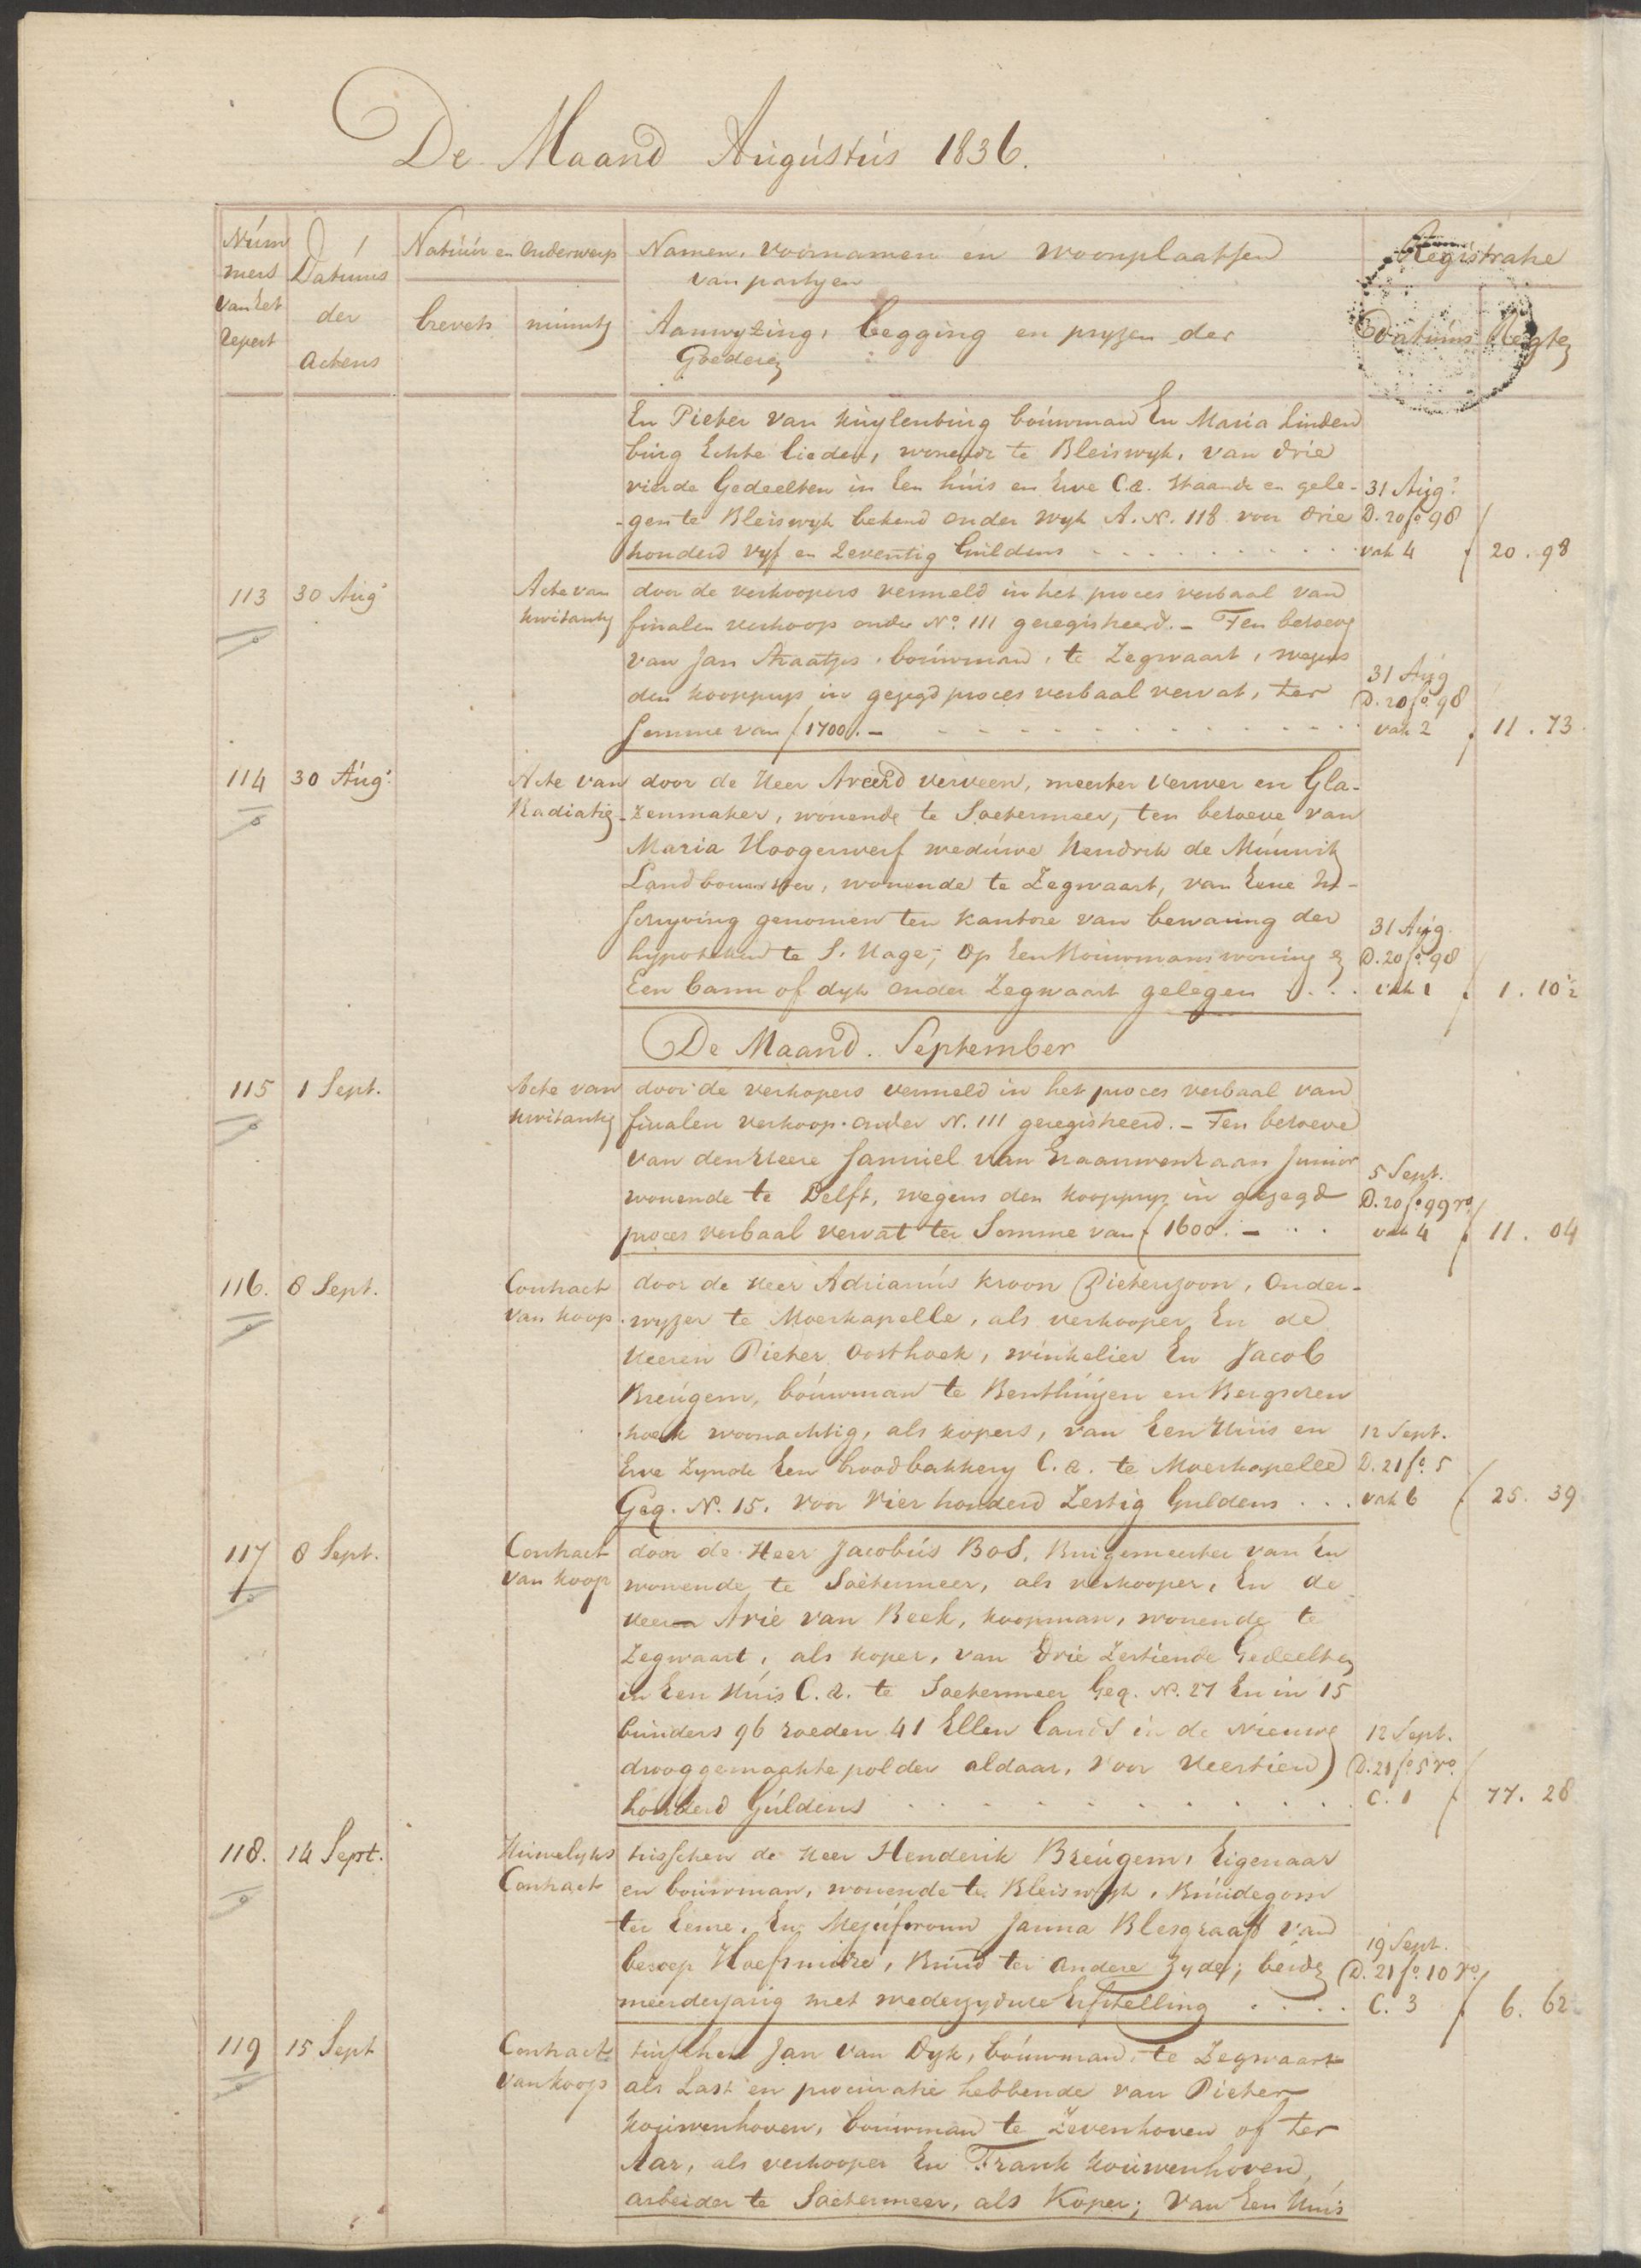 De Maand Augustus 1836.
Num
mers
van het
Repert
Datums
der
actens
Natuur en Onderwerp
brevets
minuts
Namen, voornamen en woonplaatsen
van partyen
Aanwyzing, legging en pryzen der
Goederen
Registratie
Datums Regten
En Pieter van Kuylenburg bouwman En Maria Linden
burg Echte lieden, wonende te Bleiswyk, van drie
vierde Gedeelten in Een huis en Erve C.a. Staande en gele- 31 Augs
gen te Bleiswyk bekend onder wyk A. N. 118 voor drie D. 20 fo 98
honderd vyf en Zeventig Guldens vak 4 f 20. 98
113 30 Augs Acte van door de verkoopers vermeld in het proces verbaal van
kwitantie finalen verkoop onder No. 111 geregistreerd. - Ten behoeve
van Jan Straatjes, bouwman, te Zegwaart, wegens 31 Aug
den koopprys in gezegd proces verbaal vervat, ter D. 20 fo. 98
Somme van f 1700. - vak 2 f 11. 73
114 30 Augs: Acte van door de Heer Areerd verveen, meester Verwer en Gla-
Radiatie zenmaker, wonende te Soetermeer, ten behoeve van
Maria Hoogerwerf weduwe Hendrik de Munnik
Landbouwster, wonende te Zegwaart, van Eene In-
schryving genomen ten kantore van bewaring der 31 Aug.
hypotheken te S. Hage, op Een Bouwmanswoning en D. 20 fo. 98
Een Laan of dyk onder Zegwaart gelegen vak 1 f 1. 10½
De Maand. September
115 1 Sept. Acte van door de verkopers vermeld in het proces verbaal van
kwitantie finalen verkoop onder N. 111 geregistreerd. - Ten behoeve
van den Heere Samuel van Kraanwenhaan Junior 5 Sept.
wonende te Delft, wegens den koopprys in gezegd D. 20 fo 99 ro
proces verbaal vervat ter Somme van f 1600. - vak 4 f 11. 04
116. 8 Sept. Contract door de Heer Adrianus Kroon Pieterzoon, Onder-
van koop wyzer te Moerkapelle, als verkooper, En de
Heeren Pieter Oosthoek, winkelier En Jacob
Breugem, bouwman te Benthuizen en Bergschen
hoek woonachtig, als kopers, van Een Huis en 12 Sept.
Erve Zynde Een broodbakkery C.a. te Moerkapelle D. 21 fo. 5
Geq. N. 15. voor vier honderd Zestig Guldens vak 6 f 25. 39
117 8 Sept. Contract door de Heer Jacobus Bos, Burgemeester van En
van koop wonende te Soetermeer, als verkooper, En de
Heer Arie van Beek, koopman, wonende te
Zegwaart, als koper, van Drie Zestiende Gedeelten
in Een Huis C.a. te Soetermeer Geq. N. 27 En in 15
bunders 96 roeden 41 Ellen lands in de Nieuwe 12 Sept.
drooggemaakte polder aldaar, voor Veertien D. 21 fo 5 vo.
honderd Guldens C. 1 f 77. 28
118. 14 Sept. Huwelyks tusschen de Heer Henderik Breugem, Eigenaar
Contract en bouwman, wonende te Bleiswyk, Bruidegom
ter Eene, En Mejufvrouw Janna Blesgraaf van
beroep Hoefsmidse, Bruid ter andere zyde; beide 19 Sept. D. 21 fo. 10 vo.
meerderjarig met wederzydsche Erfstelling C. 3 f 6. 62
119 15 Sept Contract tusschen Jan van Dyk, bouwman, te Zegwaart
van koop als Last en procuratie hebbende van Pieter
Kouwenhoven, bouwman te Zevenhoven of ter
Aar, als verkooper En Frank Kouwenhoven,
arbeider te Soetermeer, als Koper; van Een Huis